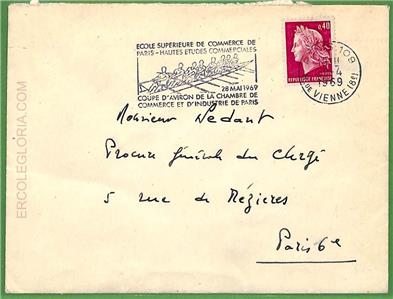 ECOLE SUPERIEURE DE COMMERCE DE
PARIS - HAUTES ETUDES COMMERCIALES
28 MAI 1969
COUPE D'AVIRON DE LA CHAMBRE DE
COMMERCE ET D'INDUSTRIE DE PARIS
0,40
REPUBLIQUE FRANÇAISE
108
4
1969
DE VIENNE (8e)
Monsieur Ledant
Procure Générale du Clergé
5 rue de Mézières
Paris 6e
ERCOLEGLORIA.COM